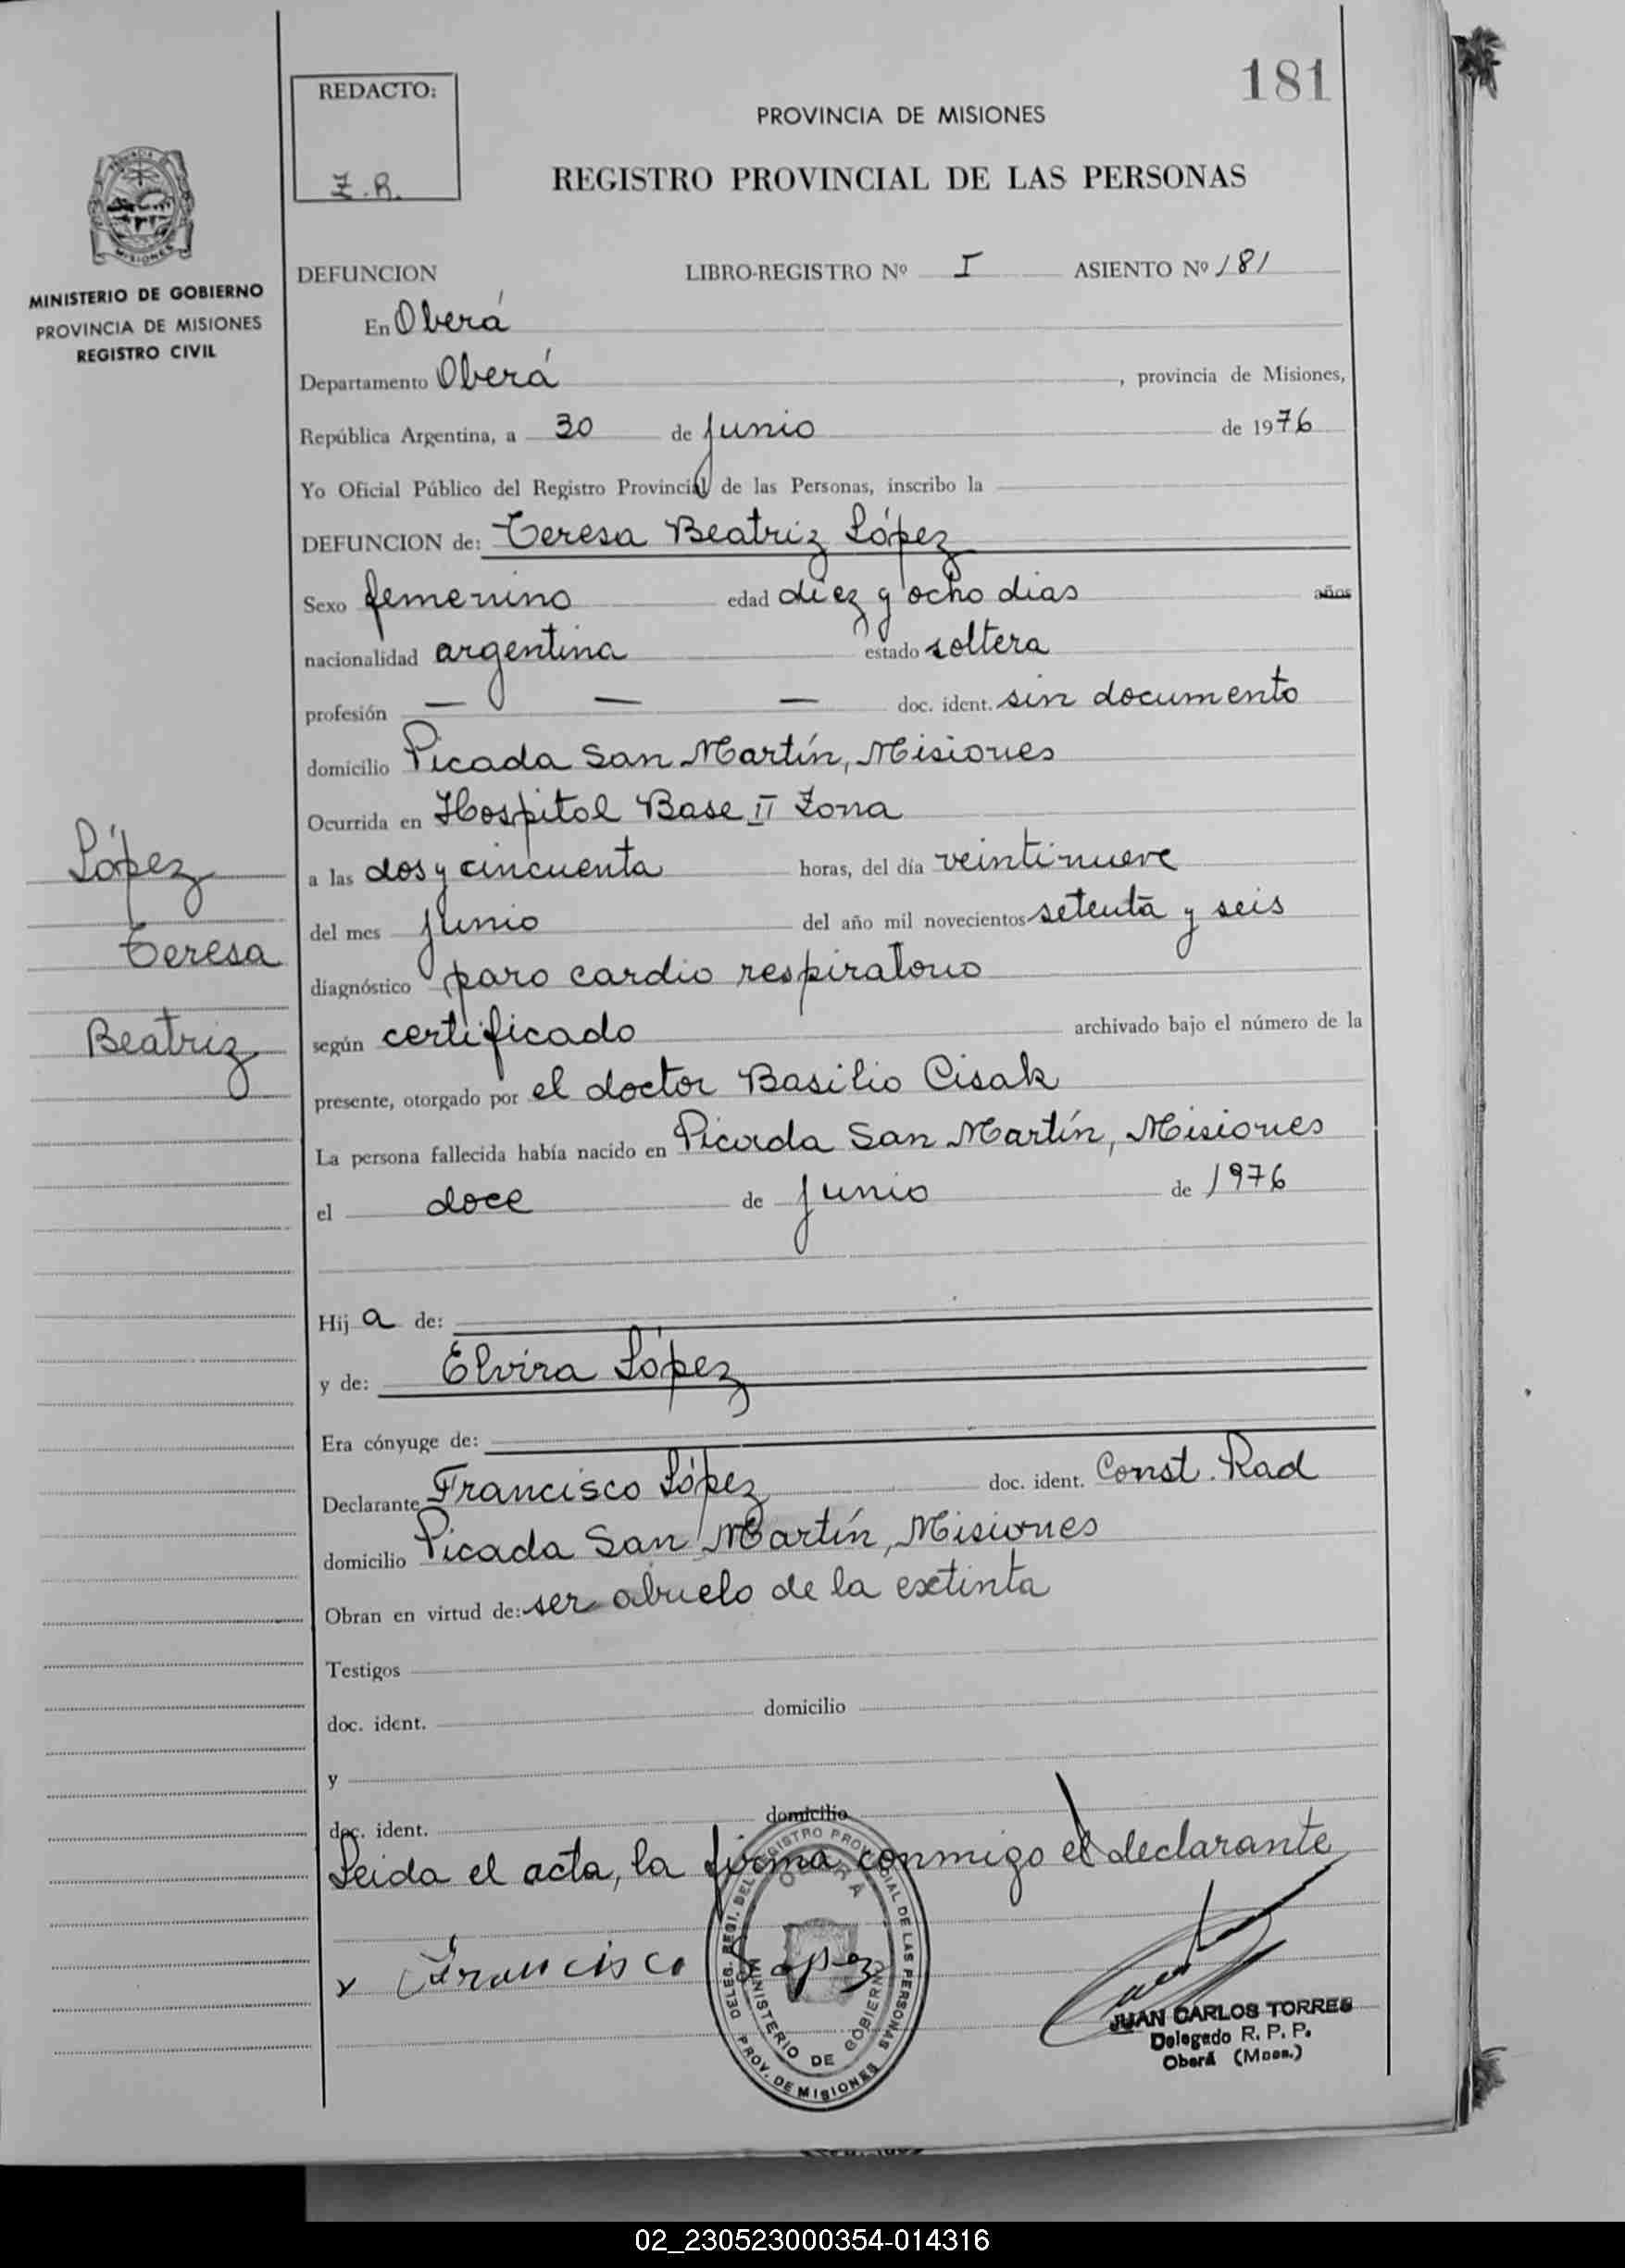 181
REDACTO:
Z.R.
PROVINCIA DE MISIONES
REGISTRO PROVINCIAL DE LAS PERSONAS
MISIONES
MINISTERIO DE GOBIERNO
PROVINCIA DE MISIONES
REGISTRO CIVIL
DEFUNCION LIBRO-REGISTRO Nº I ASIENTO Nº 181
En Oberá
Departamento Oberá, provincia de Misiones,
República Argentina, a 30 de junio de 1976
Yo Oficial Público del Registro Provincial de las Personas, inscribo la
DEFUNCION de: Teresa Beatriz López
Sexo femenino edad diez y ocho dias años
nacionalidad argentina estado soltera
profesión — — — doc. ident. sin documento
domicilio Picada San Martín, Misiones
Ocurrida en Hospital Base II Zona
a las dos y cincuenta horas, del día veintinueve
del mes junio del año mil novecientos setenta y seis
diagnóstico paro cardio respiratorio
según certificado archivado bajo el número de la
presente, otorgado por el doctor Basilio Cisak
La persona fallecida había nacido en Picada San Martín, Misiones
el doce de junio de 1976
López
Teresa
Beatriz
Hija de:
y de: Elvira López
Era cónyuge de:
Declarante Francisco López doc. ident. Const. Rad
domicilio Picada San Martín, Misiones
Obran en virtud de: ser abuelo de la extinta
Testigos
doc. ident. domicilio
y
doc. ident. domicilio
Leida el acta, la firma conmigo el declarante
x Francisco Lopez
DELEG. REGI. DEL REGISTRO PROVINCIAL DE LAS PERSONAS
OBERA
MINISTERIO DE GOBIERNO
PROV. DE MISIONES
JUAN CARLOS TORRES
Delegado R. P. P.
Oberá (Mnes.)
02_230523000354-014316